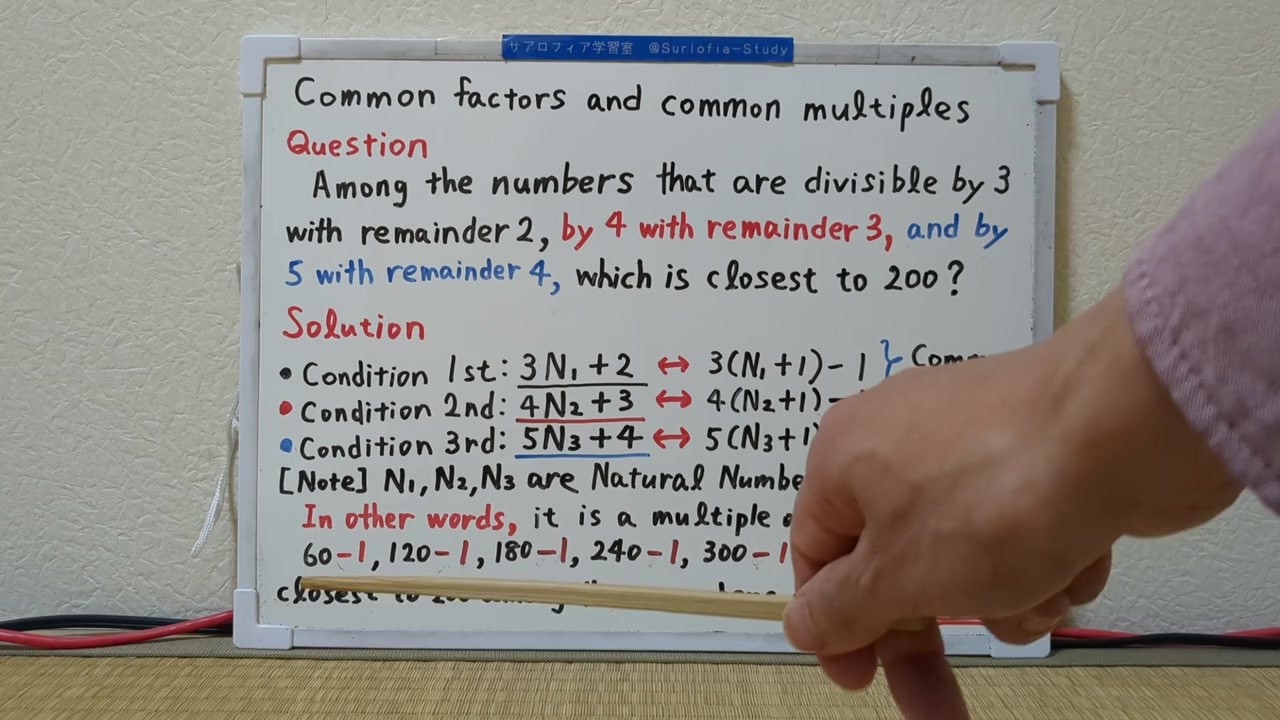 サアロフィア学習室 @Surlofia-Study
Common factors and common multiples
Question
Among the numbers that are divisible by 3
with remainder 2, by 4 with remainder 3, and by
5 with remainder 4, which is closest to 200?
Solution
• Condition 1st: 3N₁+2 ↔ 3(N₁+1)-1 }
• Condition 2nd: 4N₂+3 ↔ 4(N₂+1)-
• Condition 3rd: 5N₃+4 ↔ 5(N₃+1)
[Note] N₁,N₂,N₃ are Natural
In other words, it is a multiple
60-1, 120-1, 180-1, 240-1, 300-1
closest to 200